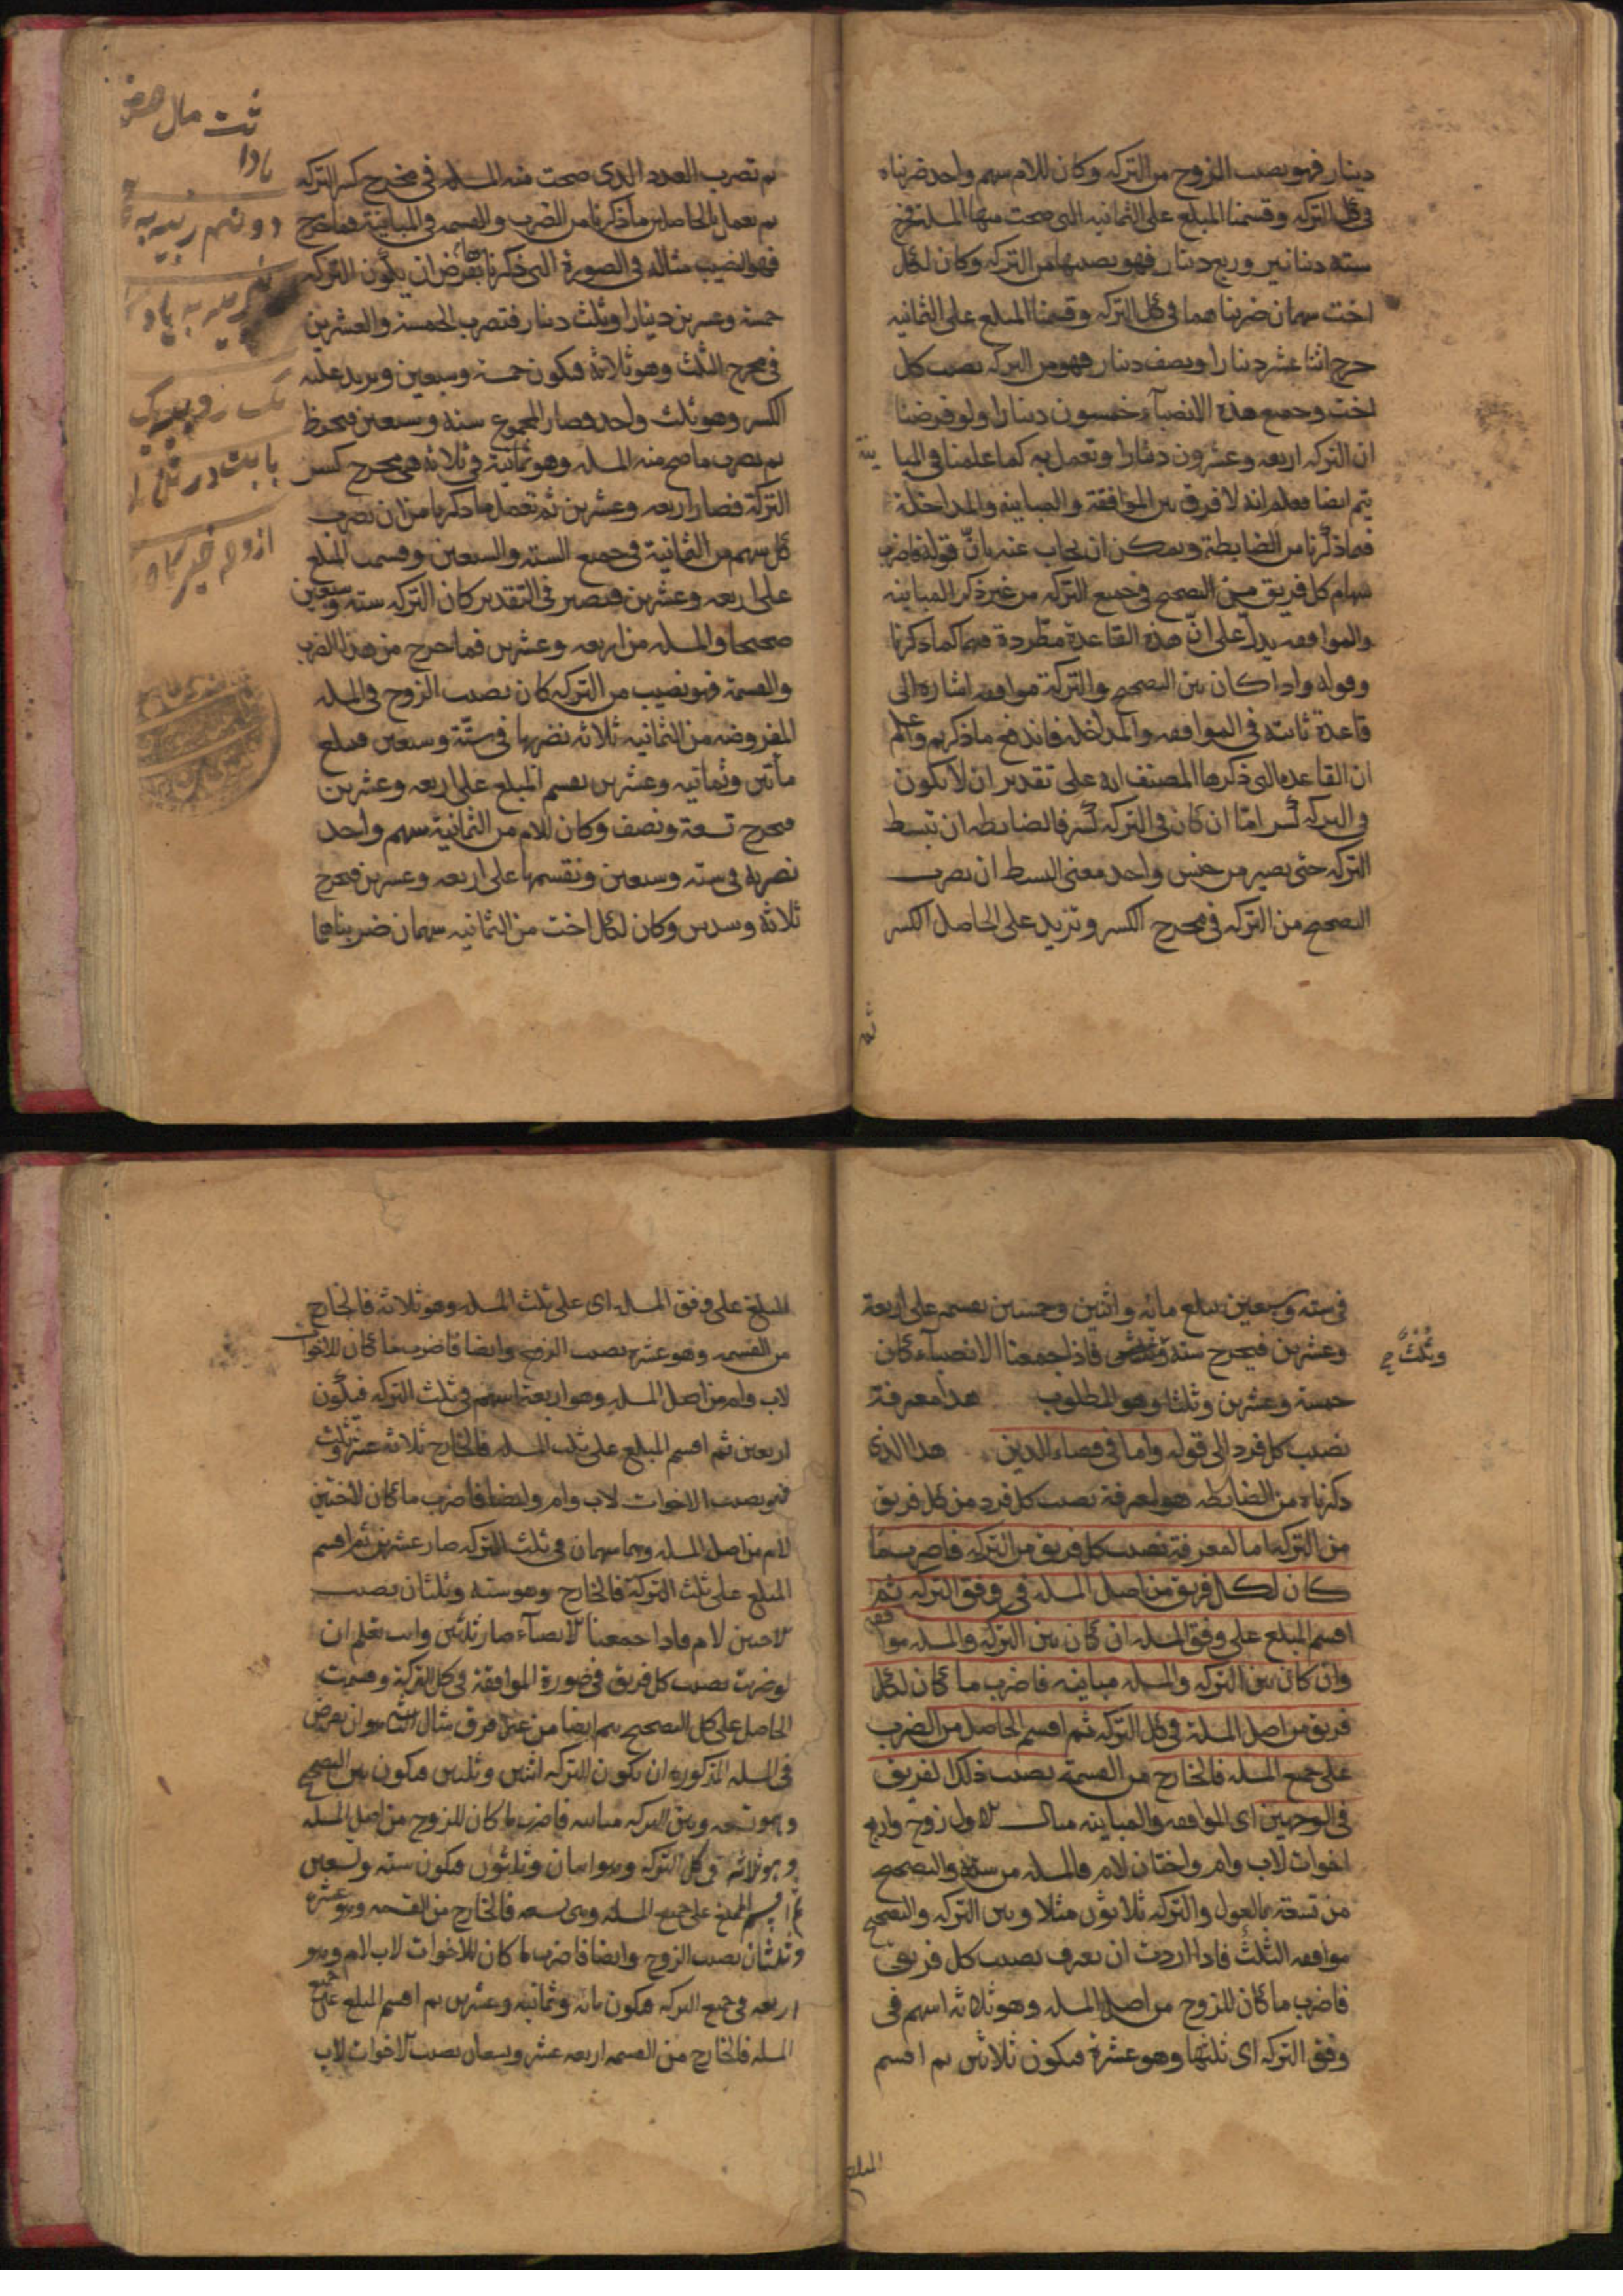 دينار فهو نصيب الزوج من التركه وكان للام سهم واحد ضربناه
فى كل التركه وقسمنا المبلغ على الثمانيه التى صحت منها المسله فخرج
سته دنانير وربع دينار فهو نصيبها من التركه وكان لكل
اخت سهمان ضربناهما فى كل التركه وقسمنا المبلغ على الثمانيه
خرج اثنا عشر دينارا ونصف دينار فهو من التركه نصيب كل
اخت وجميع هذه الانصباء خمسون دينارا ولو فرضنا
ان التركه اربعه وعشرون دينارا وتعمل به كما علمنا فى المبا
ينة
يتم ايضا فعلم انه لا فرق بين الموافقة والمباينه والمداخلة
فيما ذكرنا من الضابطة ويمكن ان يجاب عنه بان قوله فاضرب
سهام كل فريق من التصحيح فى جميع التركه من غير ذكر المباينه
والموافقه يدل على ان هذه القاعدة مطردة فيهما كما ذكرنا
وقوله واذا كان بين التصحيح والتركة موافقه اشاره الى
قاعدة ثابتة فى الموافقه والمداخله فاندفع ما ذكرتم وعلم
ان القاعده التى ذكرها المصنف انه على تقدير ان لا يكون
فى التركه كسر اما ان كان فى التركه كسر فالضابطه ان تبسط
التركه حتى يصير من جنس واحد معنى البسط ان تضرب
الصحيح من التركه فى مخرج الكسر وتزيد على الحاصل الكسر
ثم
ثم تضرب العدد الذى صحت منه المسله فى مخرج كسر التركه
ثم تعمل بالحاصلين ما ذكرنا من الضرب والقسمه فى المباينة فما خرج
فهو النصيب مثاله فى الصورة التى ذكرناها نفرض ان يكون التركه
خمسة وعشرين دينارا وثلث دينار فتضرب الخمسة والعشرين
فى مخرج الثلث وهو ثلاثة فيكون خمسة وسبعين ونزيد عليه
الكسر وهو ثلث واحد فصار المجموع ستة وسبعين فيحفظ
ثم تضرب ما صح منه المسله وهو ثمانية فى ثلاثه هى مخرج كسر
التركة فصار اربعه وعشرين ثم تعمل ما ذكرنا من ان تضرب
كل سهم من الثمانية فى جميع السته والسبعين وقسمت المبلغ
على اربعه وعشرين فيصير فى التقدير كان التركه ستة وسبعين
صحيحا والمسله من اربعه وعشرين فما خرج من هذا الضرب
والقسمة فهو نصيب من التركه كان نصيب الزوج فى المسله
المفروضه من الثمانيه ثلاثه نضربها فى ستة وسبعين فيبلغ
مأتين وثمانيه وعشرين نقسم المبلغ على اربعه وعشرين
فيخرج تسعة ونصف وكان للام من الثمانية سهم واحد
نضربه فى سته وسبعين ونقسمها على اربعه وعشرين فيخرج
ثلاثة وسدس وكان لكل اخت من الثمانيه سهمان ضربناهما
ثلث مال
فى سته وسبعين يبلغ مائه واثنين وخمسين نقسمه على اربعة
وعشرين فيخرج ستة فاذا جمعنا الانصباء كان
وثلث صح
خمسة وعشرين وثلثا وهو المطلوب هذا معرفة
نصيب كل فرد الى قوله واما فى قضاء الديون هذا الذى
ذكرناه من الضابطه هو لمعرفة نصيب كل فرد من كل فريق
من التركه اما لمعرفة نصيب كل فريق من التركه فاضرب ما
كان لكل فريق من اصل المسله فى وفق التركه ثم
اقسم المبلغ على وفق المسله ان كان بين التركه والمسله موافقه
وان كان بين التركه والمسله مباينه فاضرب ما كان لكل
فريق من اصل المسلة فى كل التركه ثم اقسم الحاصل من الضرب
على جميع المسله فالخارج من القسمة نصيب ذلك الفريق
فى الوجهين اى الموافقه والمباينه مثال الاول زوج واربع
اخوات لاب وام واختان لام فالمسله من ستة والتصحيح
من تسعة بالعول والتركه ثلاثون مثلا وبين التركه والتصحيح
موافقه الثلث فاذا اردت ان تعرف نصيب كل فريق
فاضرب ما كان للزوج من اصل المسله وهو ثلاثه اسهم فى
وفق التركه اى ثلثها وهو عشرة فيكون ثلاثين ثم اقسم
المبلغ
المبلغ على وفق المسله اى على ثلث المسله وهو ثلاثه فالخارج
من القسمه وهو عشره نصيب الزوج وايضا فاضرب ما كان للاخوات
لاب وام من اصل المسله وهو اربعة اسهم فى ثلث التركه فيكون
اربعين ثم اقسم المبلغ على ثلث المسله فالخارج ثلاثة عشر وثلث
فهو نصيب الاخوات لاب وام وايضا فاضرب ما كان للاختين
لام من اصل المسله وهما سهمان فى ثلث التركه صار عشرين ثم اقسم
المبلغ على ثلث التركة فالخارج وهو ستة وثلثان نصيب
الاختين لام فاذا جمعنا الانصباء صار ثلاثين وانت تعلم ان
لو ضربت نصيب كل فريق فى صورة الموافقة فى كل التركة وقسمت
الحاصل على كل التصحيح يتم ايضا من غير فرق مثال الثانى هو ان نفرض
فى المسله المذكوره ان تكون التركه اثنين وثلثين فيكون بين التصحيح
وهو تسعه وبين التركه مباينه فاضرب ما كان للزوج من اصل المسله
وهو ثلاثه فى كل التركه وهو اثنان وثلثون فيكون سته وتسعين
ثم اقسم المبلغ على جميع المسله وهى تسعه فالخارج من القسمه وهو عشره
وثلثان نصيب الزوج وايضا فاضرب ما كان للاخوات لاب لام وهو
اربعه فى جميع التركه فيكون مائه وثمانيه وعشرين ثم اقسم المبلغ على جميع
المسله فالخارج من القسمه اربعه عشر وتسعان نصيب الاخوات لاب